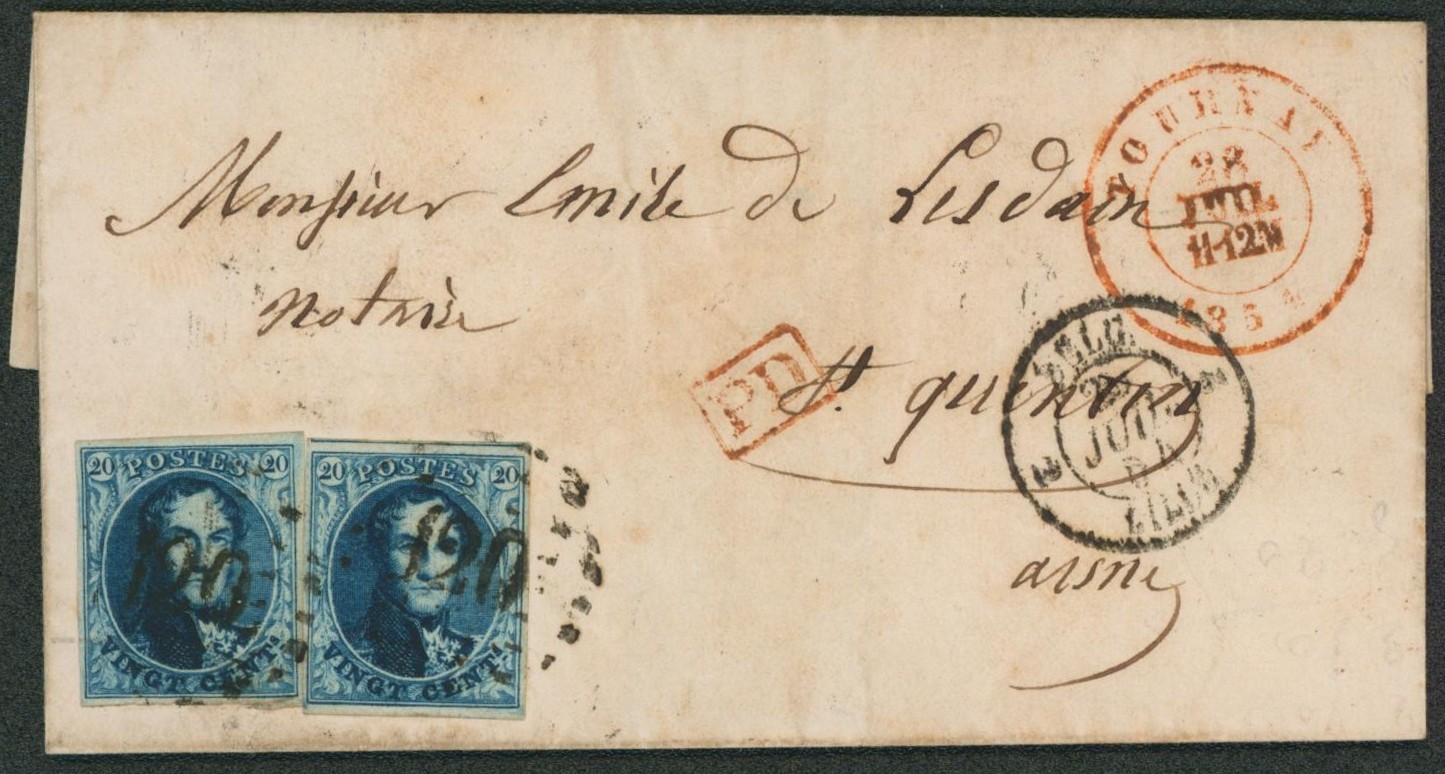 TOURNAY
28
JUIL
11-12M
185
Monsieur Emile de Lesdain
notaire
PD
St. quentin
BELG.
2
2
JUIL
LILLE
aisne
20 POSTES 20
120
VINGT CENTS.
20 POSTES 20
120
VINGT CENTS.